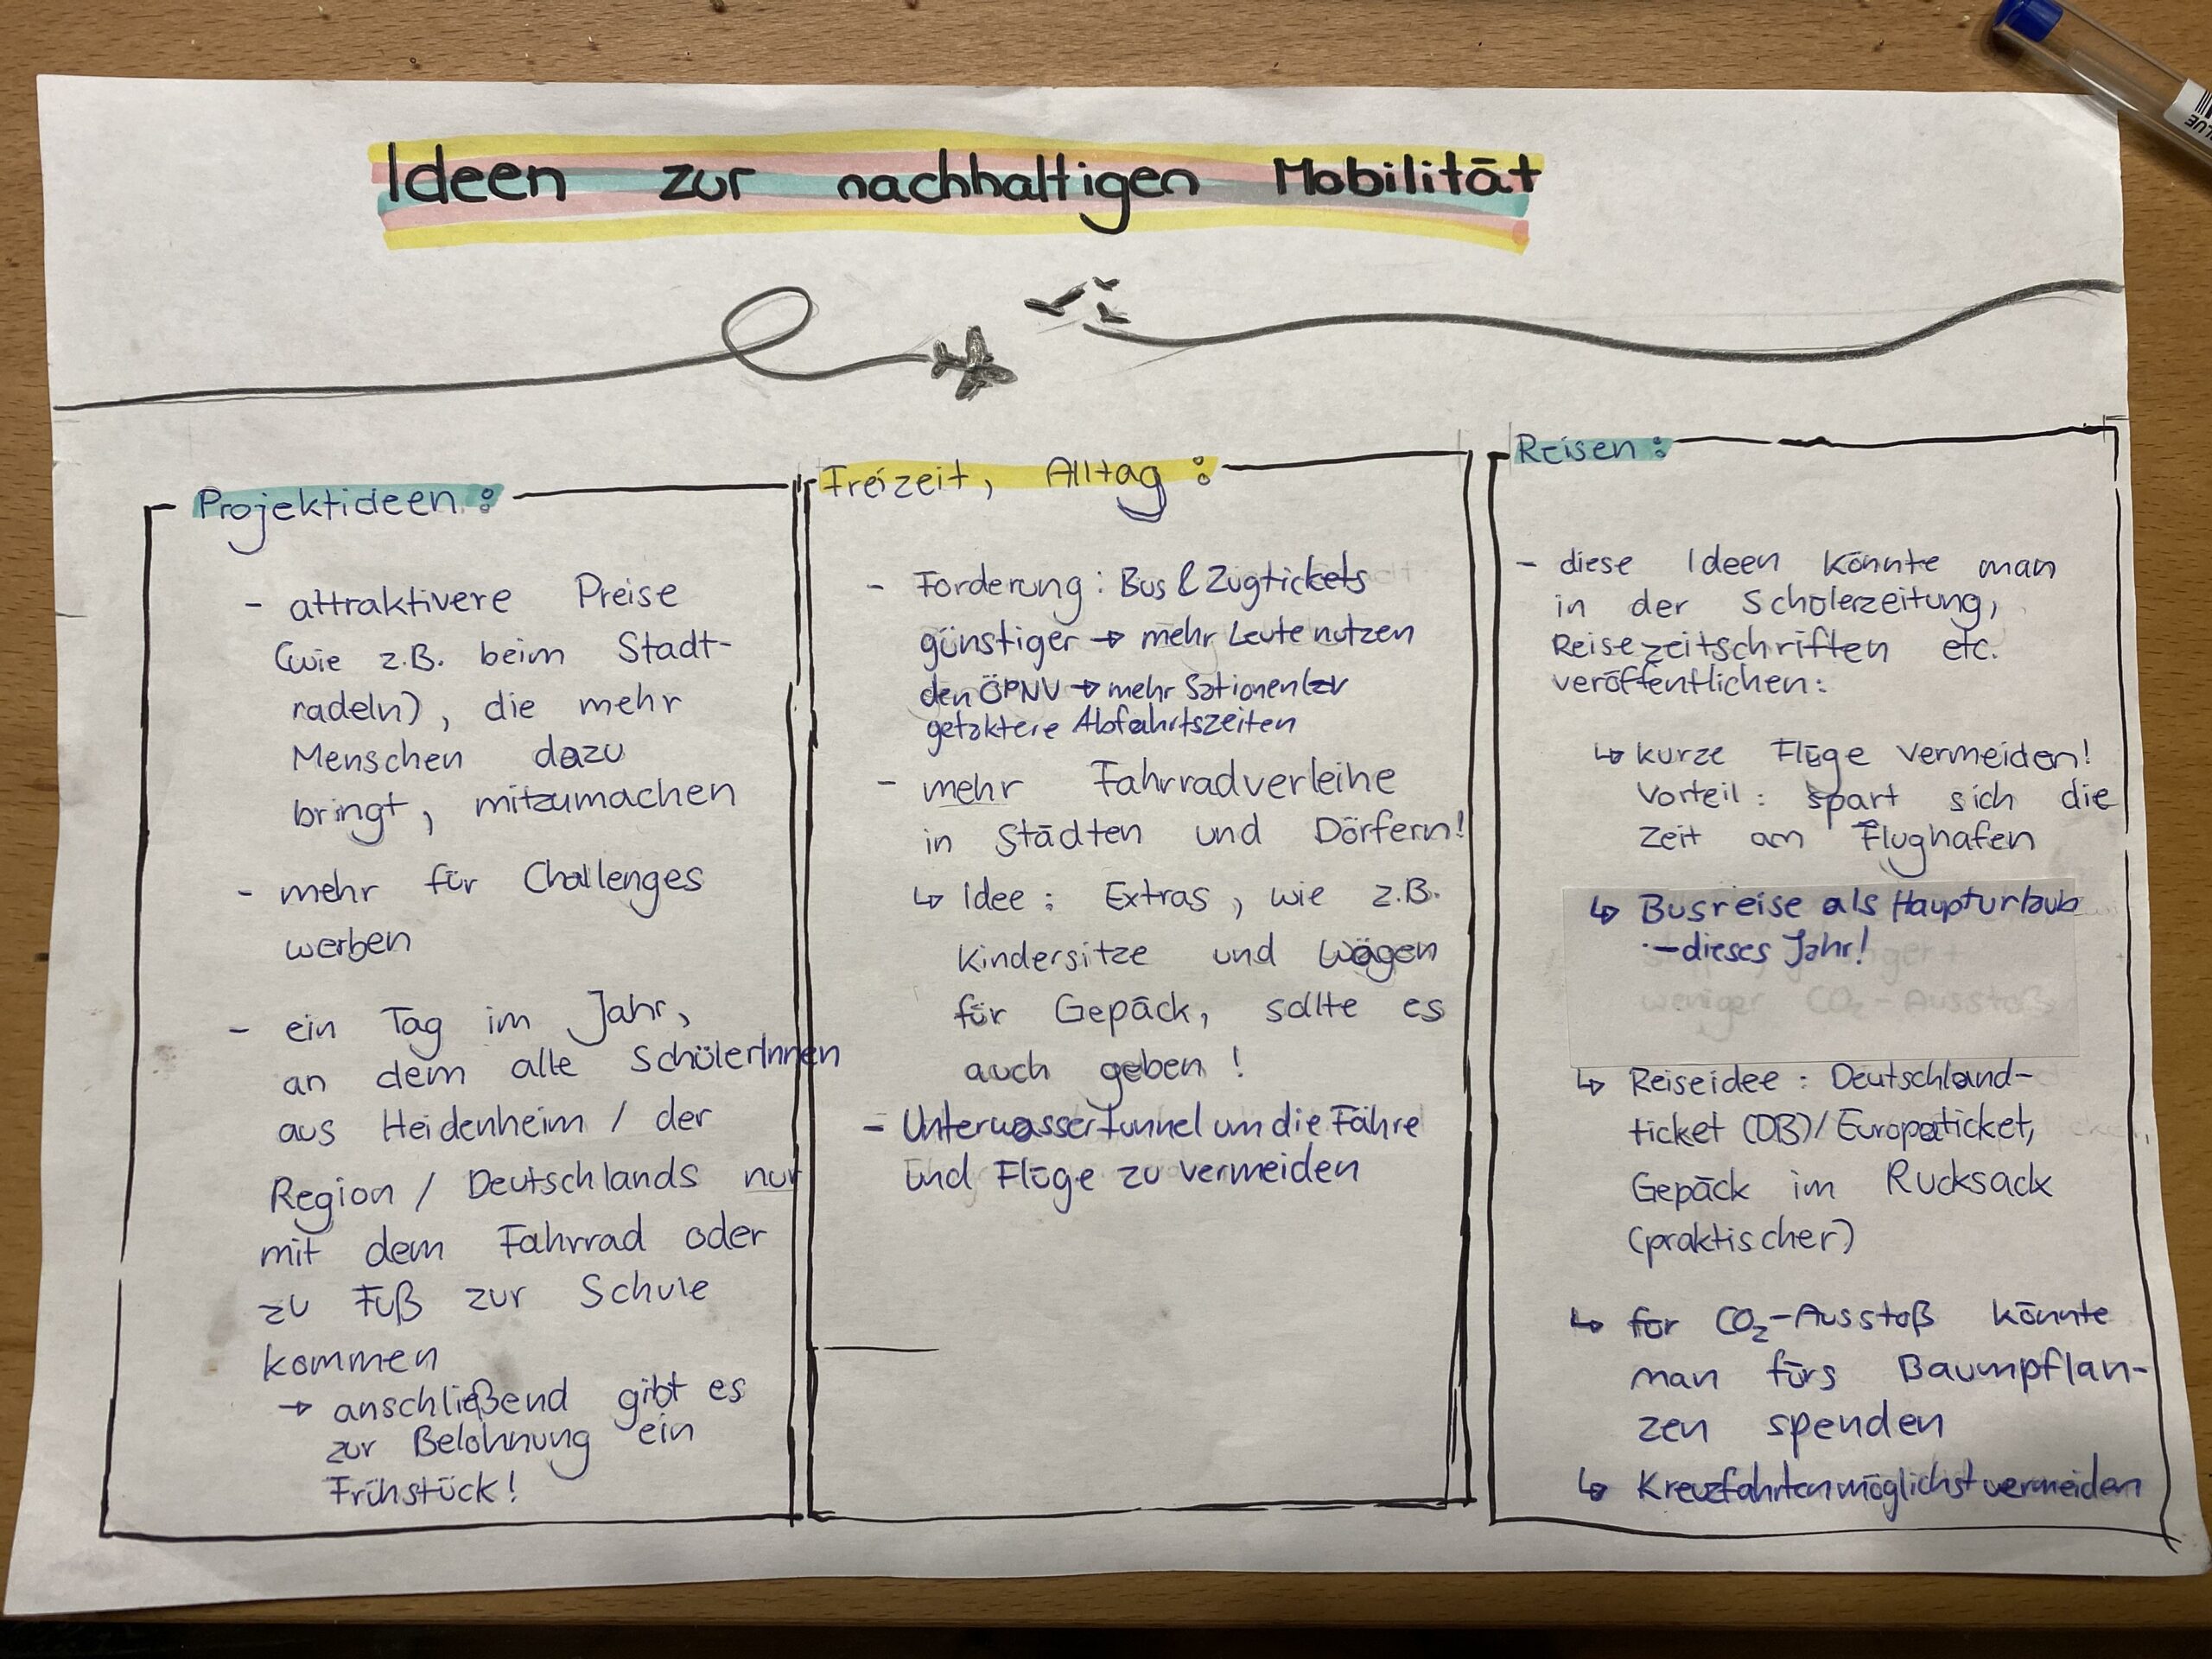 Ideen zur nachhaltigen Mobilität
Projektideen:
- attraktivere Preise
(wie z.B. beim Stadt-
radeln), die mehr
Menschen dazu
bringt, mitzumachen
- mehr für Challenges
werben
- ein Tag im Jahr,
an dem alle SchülerInnen
aus Heidenheim / der
Region / Deutschlands nur
mit dem Fahrrad oder
zu Fuß zur Schule
kommen
→ anschließend gibt es
zur Belohnung ein
Frühstück!
Freizeit, Alltag:
- Forderung: Bus & Zugtickets
günstiger → mehr Leute nutzen
den ÖPNV → mehr Sationen
getaktere Abfahrtszeiten
- mehr Fahrradverleihe
in Städten und Dörfern!
↳ Idee: Extras, wie z.B.
Kindersitze und Wägen
für Gepäck, sollte es
auch geben!
- Unterwassertunnel um die Fähre
und Flüge zu vermeiden
Reisen:
- diese Ideen könnte man
in der Schülerzeitung,
Reisezeitschriften etc.
veröffentlichen:
↳ kurze Flüge vermeiden!
Vorteil: spart sich die
Zeit am Flughafen
↳ Busreise als Haupturlaub
- dieses Jahr!
weniger CO₂-Ausstoß
↳ Reiseidee: Deutschland-
ticket (DB)/Europaticket,
Gepäck im Rucksack
(praktischer)
↳ für CO₂-Ausstoß könnte
man fürs Baumpflan-
zen spenden
↳ Kreuzfahrten möglichst vermeiden